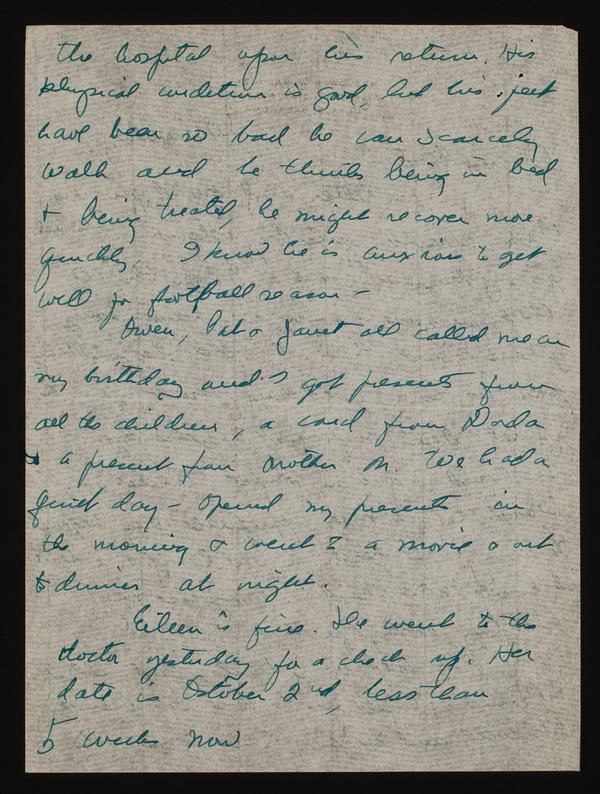 the hospital upon his return. His
physical condition is good, but his feet
have been so bad he can scarcely
walk and he thinks being in bed
+ being treated, he might recover more
quickly I know he is anxious to get
well for football season –
Owen, Pat & Janet all called me on
my birthday and I got presents from
all the children, a card from Dorda
+ a present from Mother M. We had a
quiet day – opened my presents in
the morning & went to a movie & out
to dinner at night.
Eileen is fine. She went to the
doctor yesterday for a check up. Her
date is October 2nd, less than
5 weeks now